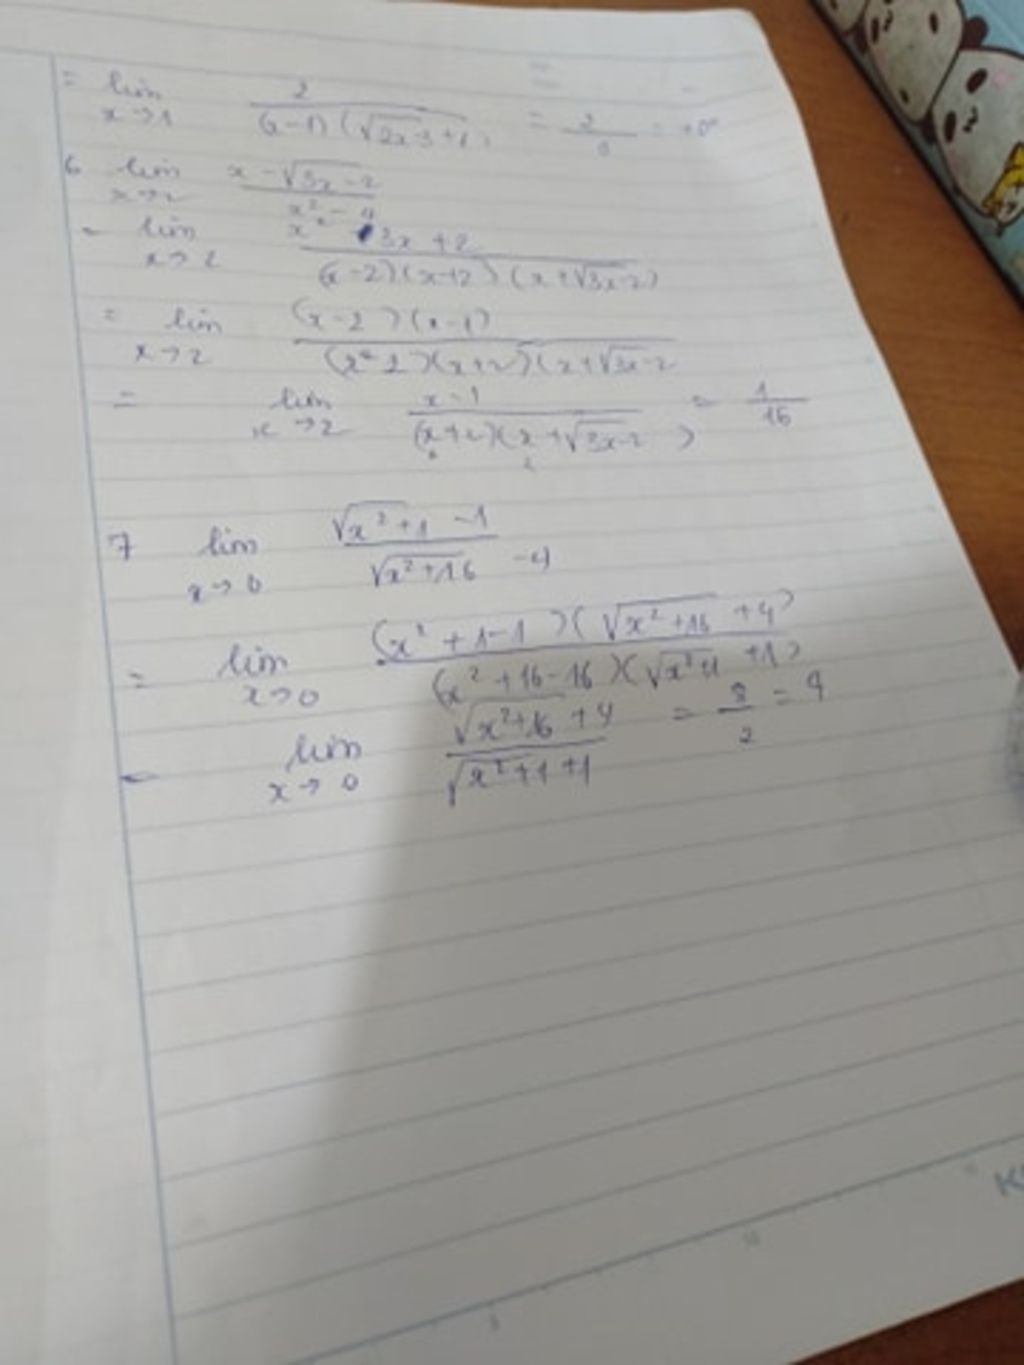 = lim x→1 2 / (x-1)(√2x-3+1) = 2/0 = +∞
6 lim x→2 x-√3x-2 / x²-4
= lim x→2 x²-3x+2 / (x-2)(x+2)(x+√3x-2)
= lim x→2 (x-2)(x-1) / (x-2)(x+2)(x+√3x-2
= lim x→2 x-1 / (x+2)(x+√3x-2) = 1/16
7 lim x→0 √x²+1 -1 / √x²+16 -4
= lim x→0 (x²+1-1)(√x²+16 +4) / (x²+16-16)(√x²+1 +1)
= lim x→0 √x²+16 +4 / √x²+1 +1 = 8/2 = 4